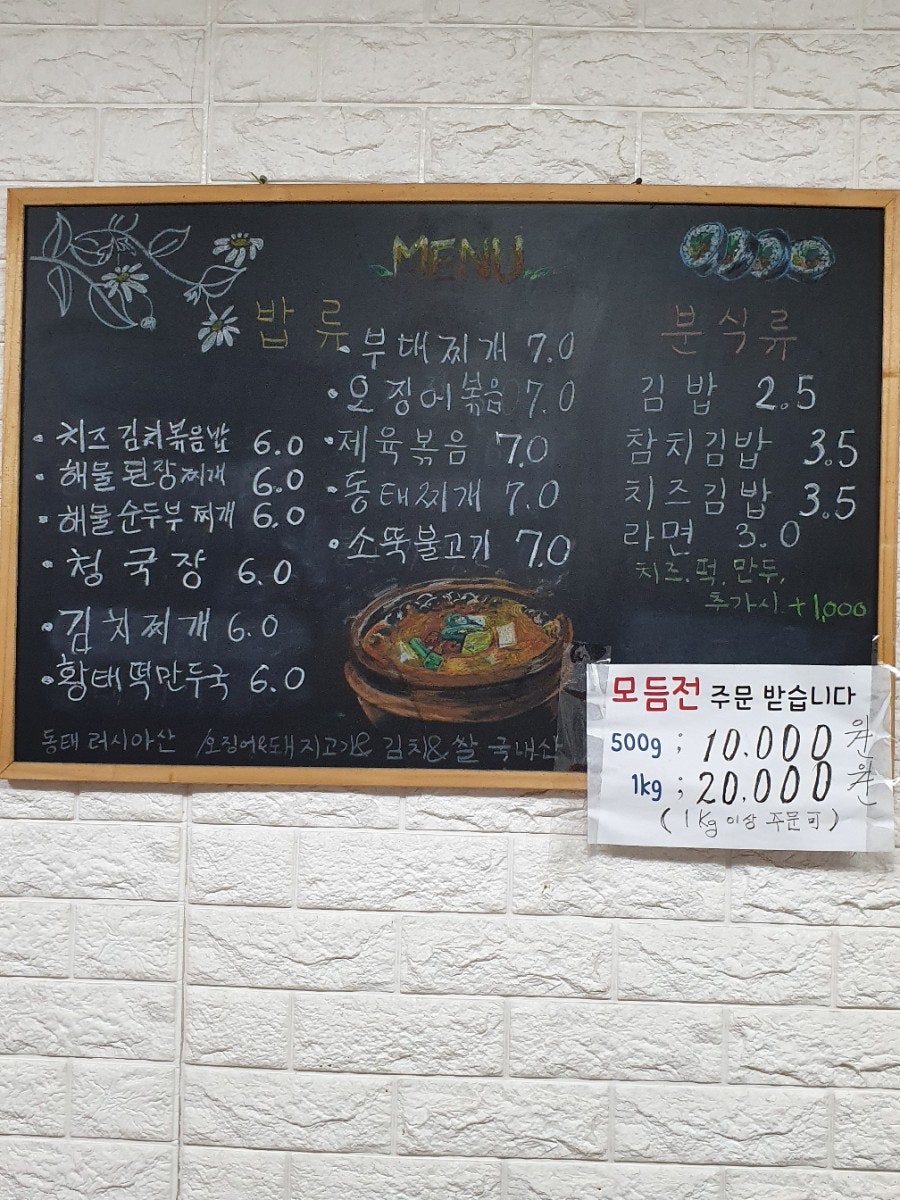 MENU
밥류
· 치즈김치볶음밥 6.0
· 해물된장찌개 6.0
· 해물순두부찌개 6.0
· 청국장 6.0
· 김치찌개 6.0
· 황태떡만두국 6.0
· 부대찌개 7.0
· 오징어볶음 7.0
· 제육볶음 7.0
· 동태찌개 7.0
· 소뚝불고기 7.0
분식류
김밥 2.5
참치김밥 3.5
치즈김밥 3.5
라면 3.0
치즈.떡.만두,
추가시 +1,000
동태 러시아산 /오징어&돼지고기& 김치&쌀 국내산
모듬전 주문 받습니다
500g ; 10.000원
1kg ; 20.000원
(1kg 이상 주문 可)